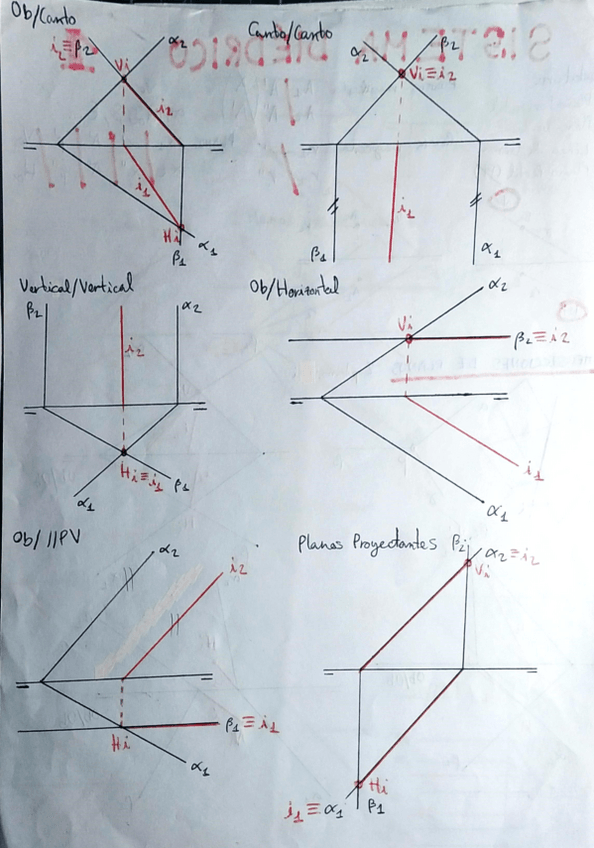 Ob/Canto
i2≡β2
α2
Vi
i2
i1
Hi
α1
β1
Canto/Canto
α2
β2
Vi≡i2
i1
β1
α1
Vertical/Vertical
β2
α2
i2
Hi≡i1
β1
α1
Ob/Horizontal
α2
Vi
β2≡i2
i1
α1
Ob/ //PV
α2
i2
β1≡i1
Hi
α1
Planos Proyectantes
β2
α2≡i2
Vi
Hi
i1≡α1
β1
SISTEMA DIEDRICO